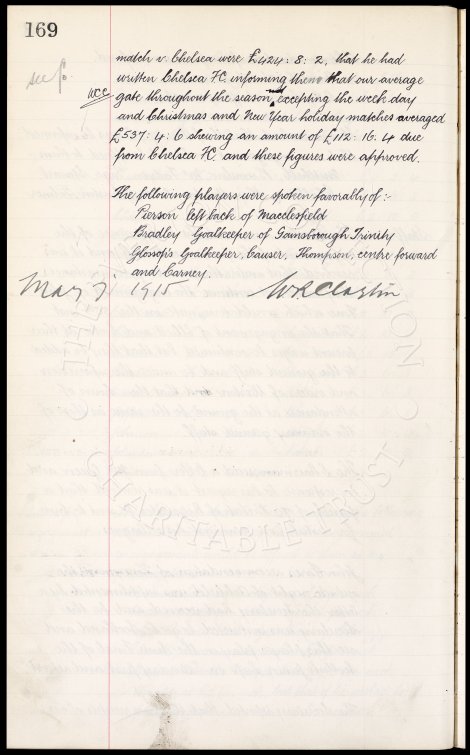 169
match v. Chelsea were £424: 8: 2, that he had
written Chelsea F.C. informing them that our average
WCC
gate throughout the season, excepting the week-day
and Christmas and New Year holiday matches averaged
£537: 4: 6 shewing an amount of £112: 16. 4 due
from Chelsea F.C. and these figures were approved.
The following players were spoken favorably of:-
Pierson left back of Macclesfield
Bradley Goalkeeper of Gainsborough Trinity
Glossop's Goalkeeper, Causer, Thompson, centre forward
and Carney.
May 7 1915
CHARITABLE TRUST